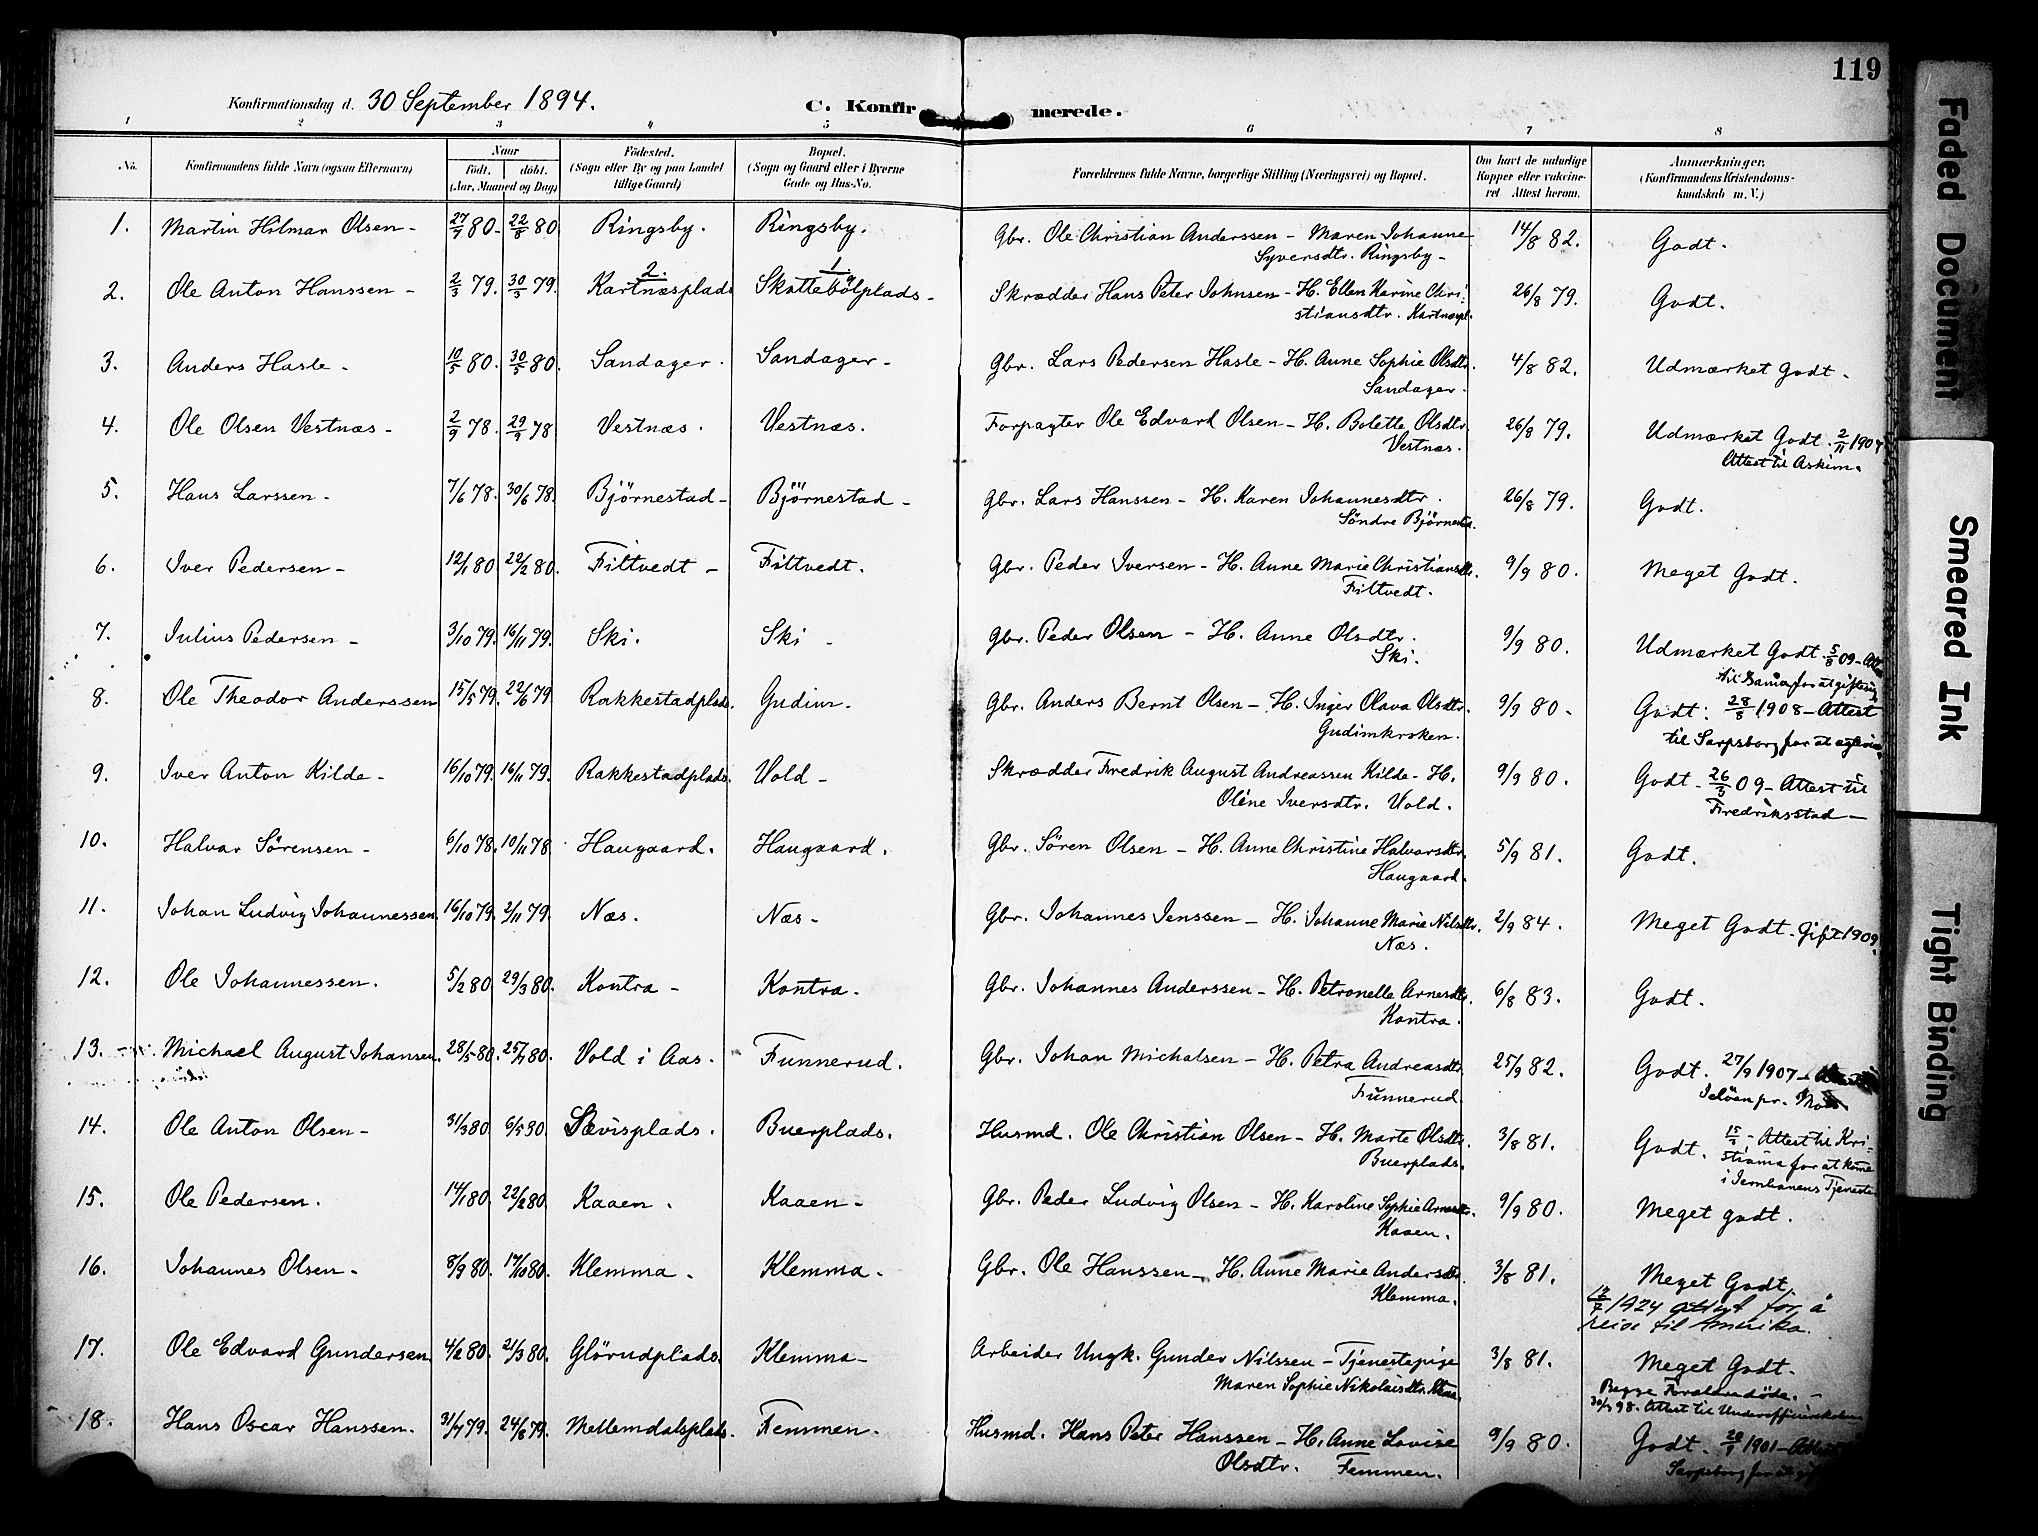 119
Konfirmationsdag d. 30 September 1894. C. Konfirmerede.
1 2 3 4 5 6 7 8
No. Konfirmandens fulde Navn (ogsaa Efternavn) Naar født. døbt. (Aar, Maaned og Dag) Fødested. (Sogn eller By og paa Landet tillige Gaard) Bopæl. (Sogn og Gaard eller i Byerne Gade og Hus-No. Forældrenes fulde Navne, borgerlige Stilling (Næringsvei) og Bopæl. Om havt de naturlige Kopper eller vakcineret Attest herom. Anmærkninger. (Konfirmandens Kristendomskundskab m. V.)
1. Martin Hilmar Olsen - 27/7 80. 22/8 80 Ringsby. Ringsby. Gbr. Ole Christian Anderssen - Maren Johanne 14/8 82. Godt.
Syversdtr. Ringsby -
2. Ole Anton Hanssen - 2/3 79. 30/3 79. 2. Kartnæsplads 1 Skøttebølplads - Skrædder Hans Peter Johnsen - H. Ellen Karine Chri- 26/8 79. Godt.
stiansdtr. Kartnæspl.
3. Anders Hasle - 10/5 80. 30/5 80. Sandager. Sandager - Gbr. Lars Pedersen Hasle - H. Anne Sophie Olsdtr. 4/8 82. Udmærket Godt -
Sandager.
4. Ole Olsen Vestnæs - 2/9 78. 29/9 78 Vestnæs. Vestnæs. Forpagter Ole Edvard Olsen - H. Bolette Olsdtr. 26/8 79. Udmærket Godt. 2/11 1907
Vestnæs. Attest til Askim.
5. Hans Larssen - 7/6 78. 30/6 78. Bjørnestad - Bjørnestad - Gbr. Lars Hanssen - H. Karen Johannesdtr. 26/8 79. Godt.
Søndre Bjørnestd.
6. Iver Pedersen - 12/1 80 22/2 80. Filtvedt - Filtvedt. Gbr. Peder Iversen - H. Anne Marie Christiansdtr. 9/9 80. Meget Godt.
Filtvedt.
7. Julius Pedersen - 3/10 79. 16/11 79. Ski. Ski - Gbr. Peder Olsen - H. Anne Olsdtr. 9/9 80. Udmærket Godt. 5/8 09 -
Ski.
8. Ole Theodor Anderssen 15/5 79. 22/6 79 Rakkestadplads. Gudim. Gbr. Anders Bernt Olsen - H. Inger Olava Olsdtr. 9/9 80 - Godt. 28/8 1908 - Attest
Gudimkroken. til Sarpsborg for at
9. Iver Anton Kilde - 16/10 79. 16/11 79. Rakkestadplads. Vold - Skrædder Fredrik August Andreassen Kilde - H. 9/9 80. Godt - 26/3 09 - Attest til
Oline Iversdtr. Vold. Fredriksstad -
10. Halvar Sørensen - 6/10 78. 10/11 78 Haugaard. Haugaard. Gbr. Søren Olsen - H. Anne Christine Halvorsdtr. 5/9 81. Godt.
Haugaard.
11. Johan Ludvig Johannessen 16/10 79. 2/11 79. Næs. Næs - Gbr. Johannes Jenssen - H. Johanne Marie Nilsdtr. 2/9 84. Meget Godt - Gift 1909
Næs.
12. Ole Johannessen. 5/2 80 29/3 80. Kontra - Kontra - Gbr. Johannes Anderssen - H. Petronelle Arnesdtr. 6/8 83. Godt.
Kontra.
13. Michael August Johansen. 28/5 80. 25/7 80. Vold i Aas. Funnerud. Gbr. Johan Michalsen - H. Petra Andreasdtr. 25/9 82. Godt. 27/9 1907 -
Funnerud. Jeløen pr.
14. Ole Anton Olsen - 31/3 80 6/5 80. Sævisplads. Buerplads. Husmd. Ole Christian Olsen - H. Marte Olsdtr. 3/8 81. Godt. - Attest til Kri-
Buerplads. stiania for at komme
i Jernbanens Tjeneste
15. Ole Pedersen. 14/1 80. 22/2 80. Kaaen. Kaaen - Gbr. Peder Ludvig Olsen - H. Karoline Sophie Arnesdtr. 9/9 80. Meget godt.
Kaaen.
16. Johannes Olsen - 8/9 80. 17/10 80. Klemma. Klemma. Gbr. Ole Hanssen - H. Anne Marie Andersdtr. 3/8 81. Meget Godt.
Klemma. 1924 attest for å
reise til Amerika.
17. Ole Edvard Gundersen 4/2 80. 21/3 80. Glørudplads. Klemma - Arbeider Ungk. Gunder Nilssen - Tjenestepige 3/8 81. Meget Godt.
Maren Sophie Nikolaisdtr. Begge Forældre døde. -
98. Attest til Underofficerskolen
18. Hans Oscar Hanssen. 31/7 79. 24/8 79. Mellemdalsplads. Femmen. Husmd. Hans Peter Hanssen - H. Anne Lovise 9/9 80. Godt. 1901 -
Olsdtr. Femmen. Sarpsborg for at
Faded Document
Smeared Ink
Tight Binding